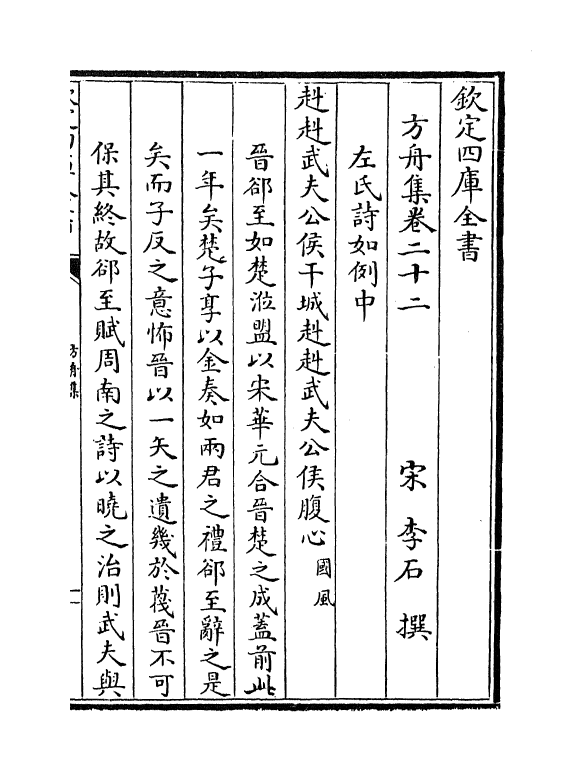 欽定四庫全書
方舟集卷二十二 宋 李石 撰
左氏詩如例中
赳赳武夫公侯干城赳赳武夫公侯腹心 國風
晉郤至如楚涖盟以宋華元合晉楚之成蓋前此
一年矣楚子享以金奏如兩君之禮郤至辭之是
矣而子反之意怖晉以一矢之遺幾於蔑晉不可
保其終故郤至賦周南之詩以曉之治則武夫與
方舟集